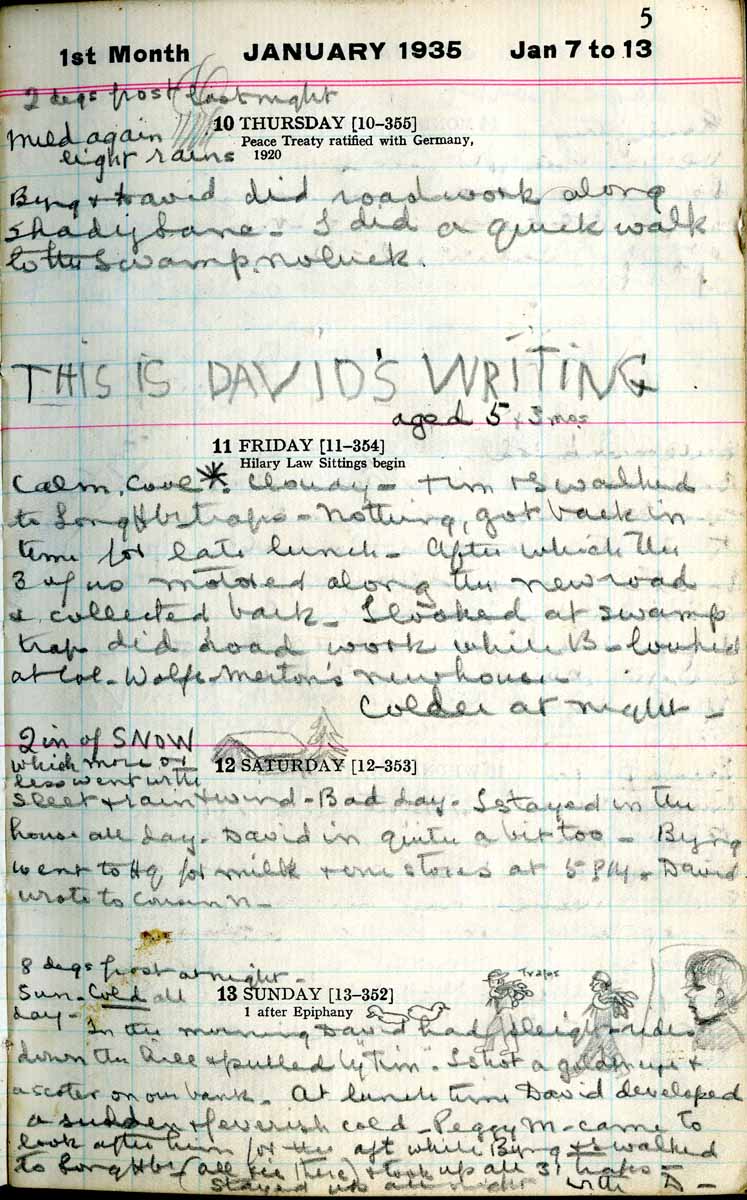 5
1st Month JANUARY 1935 Jan 7 to 13
2 degs frost last night
10 THURSDAY [10–355]
Peace Treaty ratified with Germany,
1920
Mild again
light rains
Byng & David did roadwork along
Shady Lane – I did a quick walk
to the Swamp, no luck.
THIS IS DAVID'S WRITING
aged 5 & 3 mos
11 FRIDAY [11–354]
Hilary Law Sittings begin
Calm, Cool. Cloudy – Tim & I walked
to Long Hbr traps – Nothing, got back in
time for late lunch – After which the
3 of us motored along the new road
& collected bark – I looked at swamp
trap did road work while B – looked
at Col – Wolfe-Merton's new house –
Colder at night –
2 in of SNOW
which more or
less went with
12 SATURDAY [12–353]
sleet & rain & wind – Bad day – I stayed in the
house all day – David in quite a bit too – Byng
went to Hq for milk & stores at 5 PM – David
wrote to Cousin N –
8 degs frost at night –
Sun – Cold all
day –
13 SUNDAY [13–352]
1 after Epiphany
Traps
In the morning David had sleigh rides
down the hill & pulled by Tim – I shot a goldeneye &
a scoter on our bank – At lunch time David developed
a sudden & feverish cold – Peggy M – came to
look after him for the aft while Byng & I walked
to Long Hbr (all ice there) & took up all 3 traps –
Stayed up all night with D –